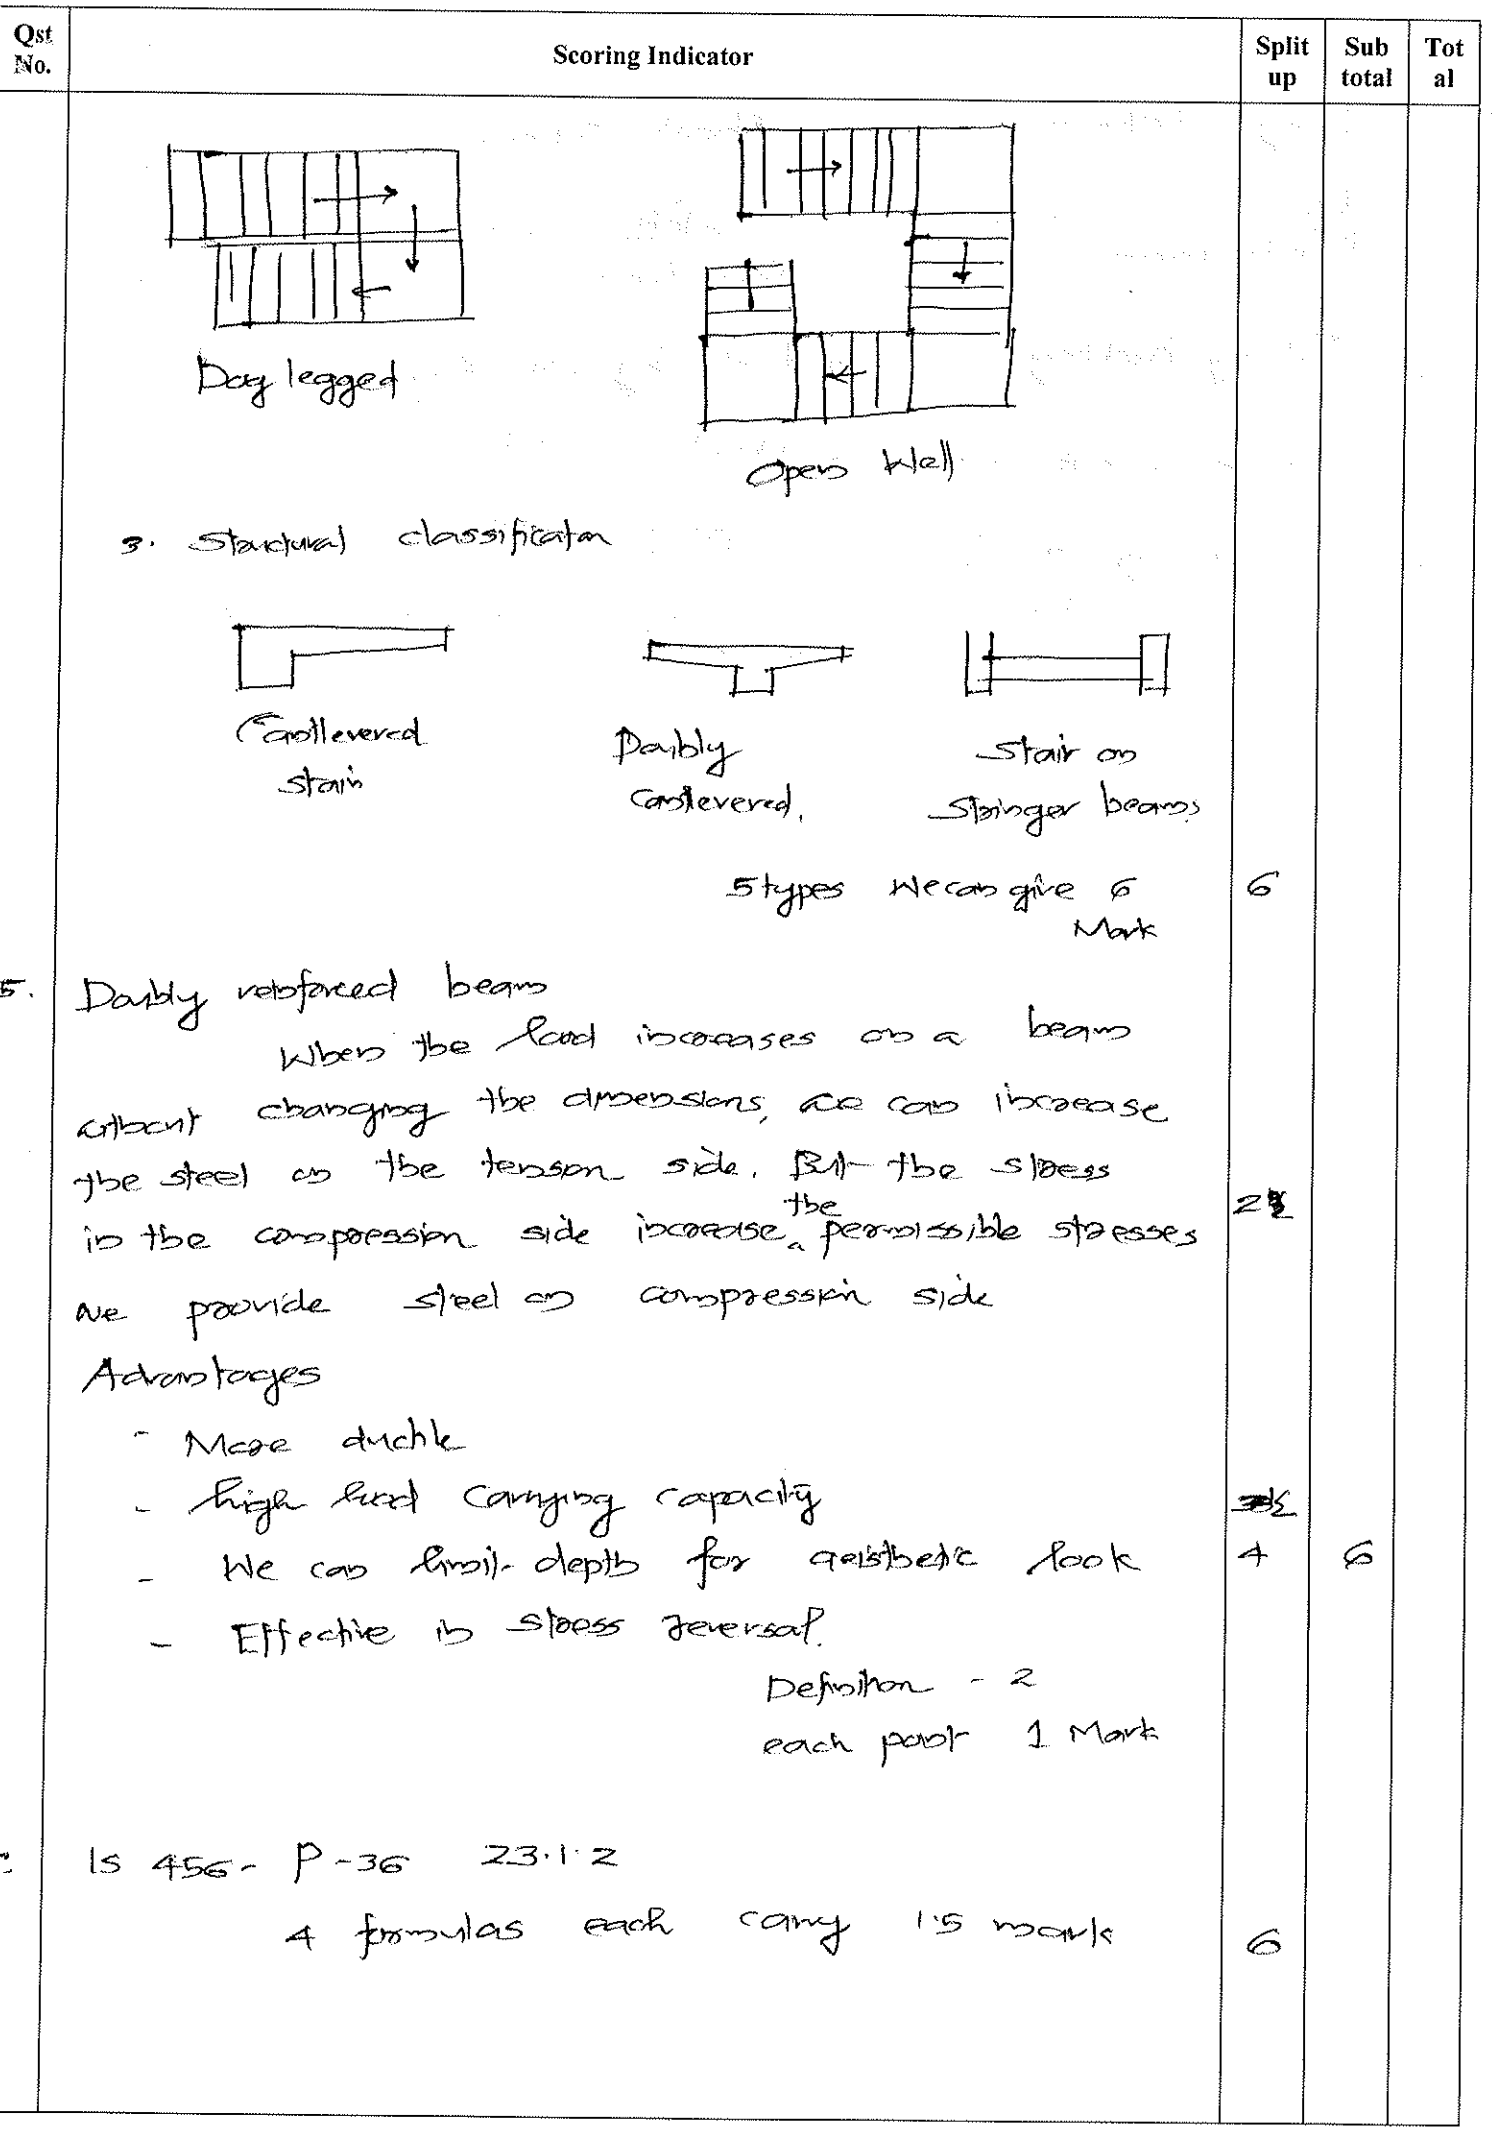 Qst No.
Scoring Indicator
Split up
Sub total
Tot al
Dog legged
Open Well
3. Structural classification
Cantilevered stair
Doubly Cantilevered.
Stair on Stringer beams
5 types We can give 6 Mark
6
5. Doubly reinforced beam
When the load increases on a beam
without changing the dimensions, we can increase
the steel on the tension side. But the stress
in the compression side increase the permissible stresses
2
we provide steel on compression side
Advantages
- More ductile
- high load Carrying capacity
- We can limit depth for aeisthetic look
4
6
- Effective in stress reversal.
Definition - 2
each point 1 Mark
Is 456 - P-36 23.1.2
4 formulas each carry 1.5 mark
6